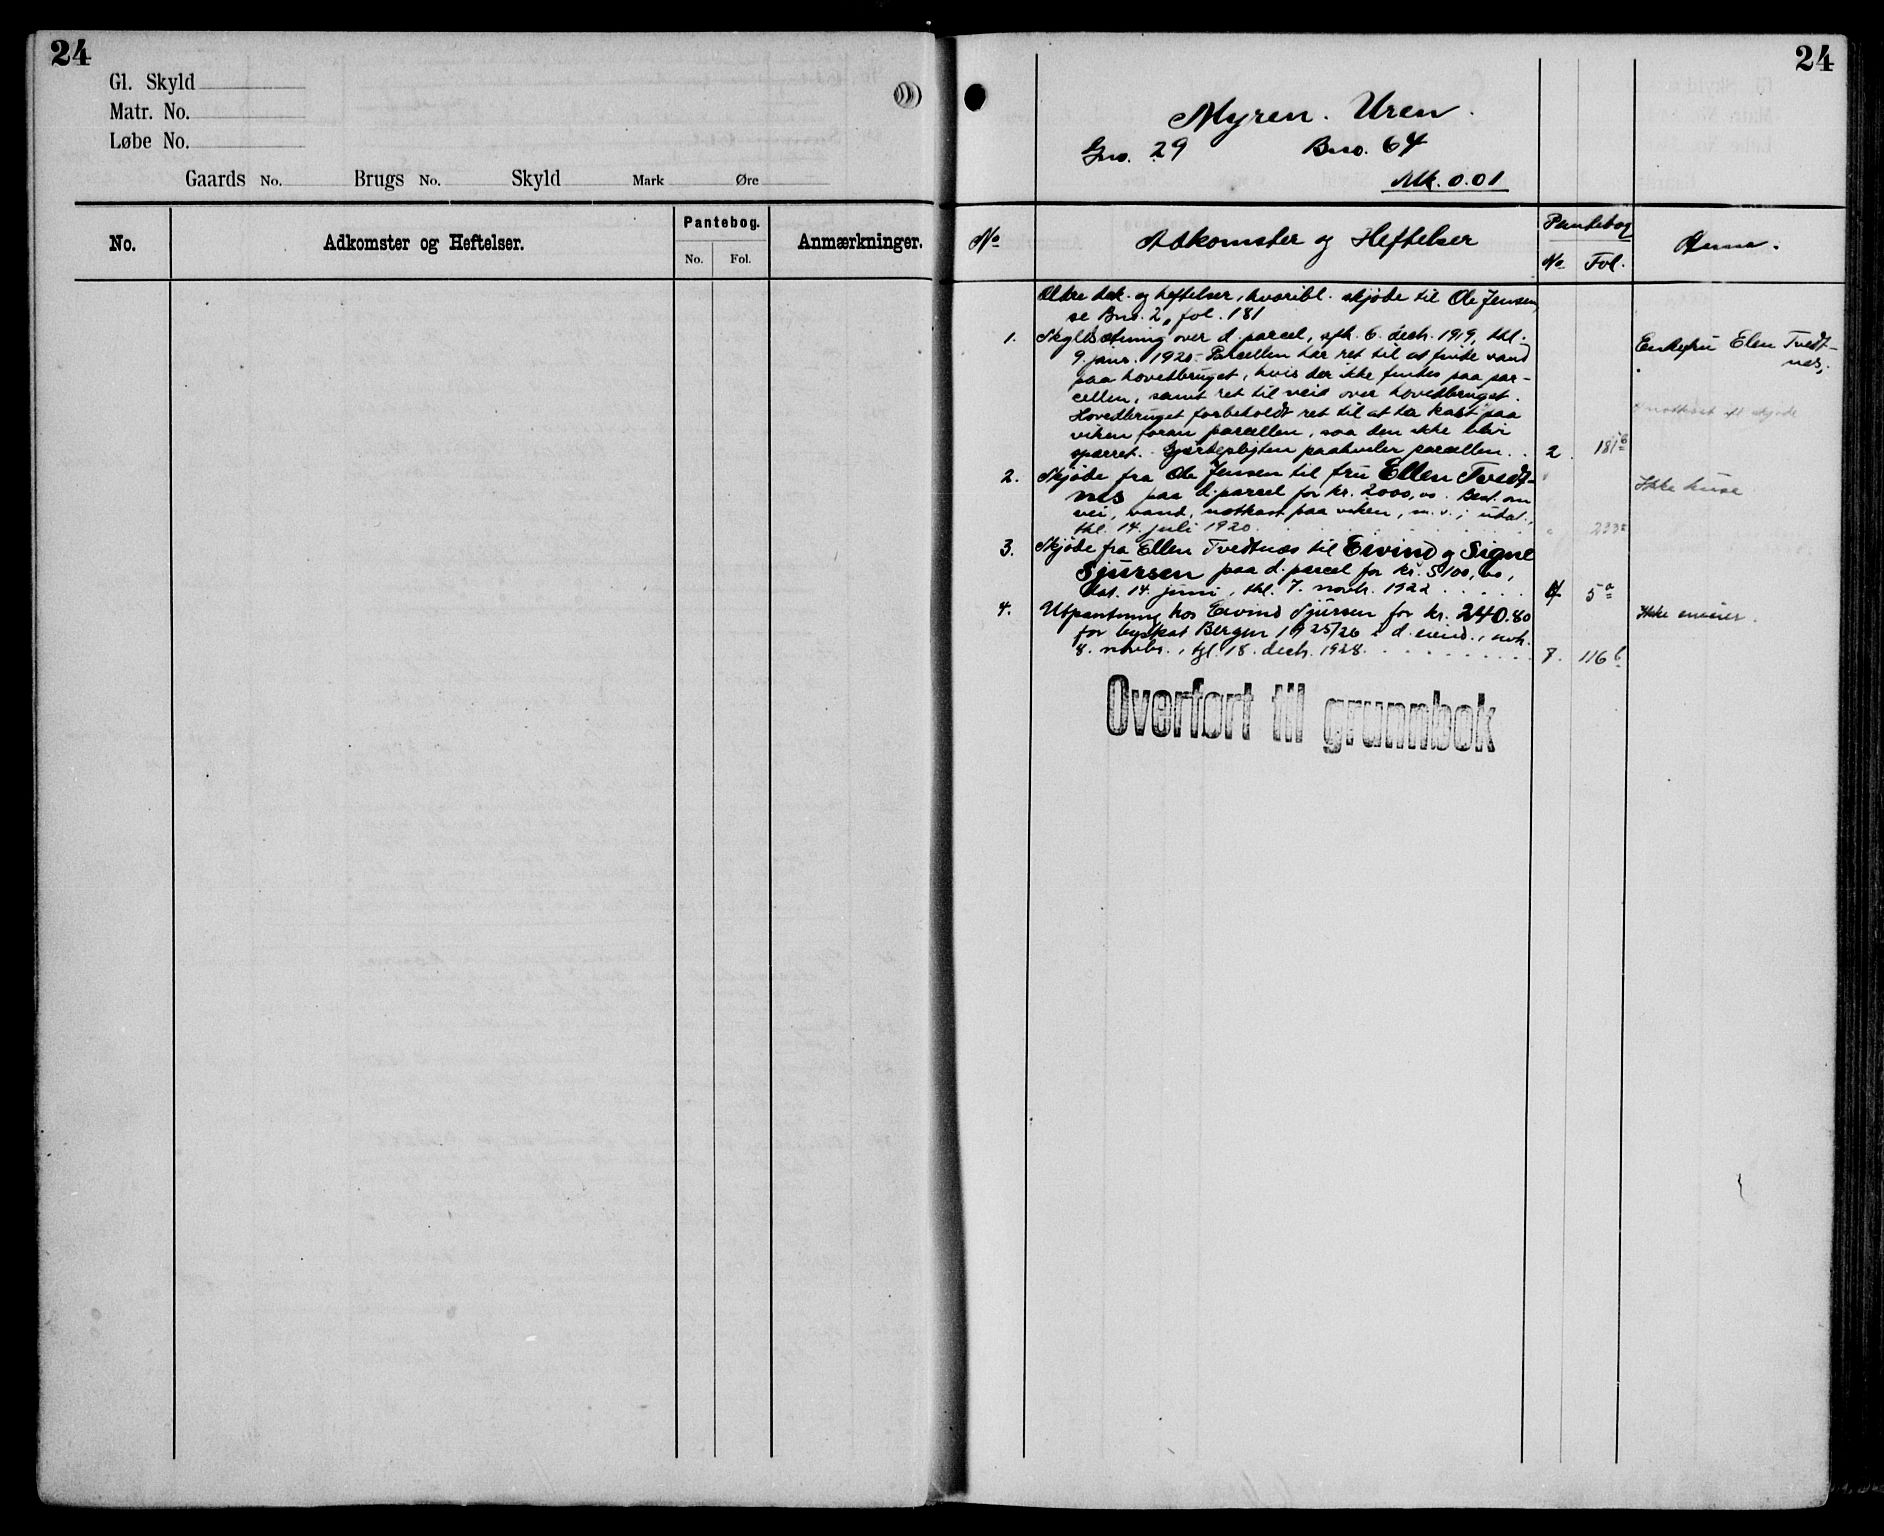 24
Gl. Skyld
Matr. No.
Løbe No.
Gaards No. Brugs No. Skyld Mark Øre
No. Adkomster og Heftelser. Pantebog. Anmærkninger.
No. Fol.
24
Myren. Uren.
Gno. 29 Bno. 64
Mk. 0.01
No Adkomster og Heftelser Pantebog Anm.
No Fol.
Ældre dok. og heftelser, hvoribl. skjøde til Ole Jensen,
se Bno. 2, fol. 181
1. Skyldsætning over d. parcel, afh. 6. decb. 1919, thl.
9. janr. 1920. Parcellen har ret til at finde vand
paa hovedbruget, hvis der ikke findes paa par-
cellen, samt ret til veid over hovedbruget.
Hovedbruget forbeholdt ret til at ta kast paa
viken foran parcellen, saa den ikke blir
sperret. Gjerdepligten paahviler parcellen. . 2. 181b
Enkefru Elen Tvedt-
nes.
notkast skjøde
2. Skjøde fra Ole Jensen til fru Ellen Tvedt-
nes paa d. parcel for kr. 2000,00. Best. om
vei, vand, notkast paa viken, m. v.; udat.,
thl. 14. juli 1920. " 233a
Ikke huse
3. Skjøde fra Ellen Tvedtnæs til Eivind og Signe
Sjursen paa d. parcel for kr. 5100,00,
dat. 14. juni, thl. 7. novbr. 1922 . . . . . 4 5a
4. Utpantning hos Eivind Sjursen for kr. 240.80
for byskat Bergen 1925/26 i d. eiend., avh.
8. novbr., tgl. 18. decb. 1928. . . . . . . . . 7. 116b
Ikke eneeier.
Overført til grunnbok